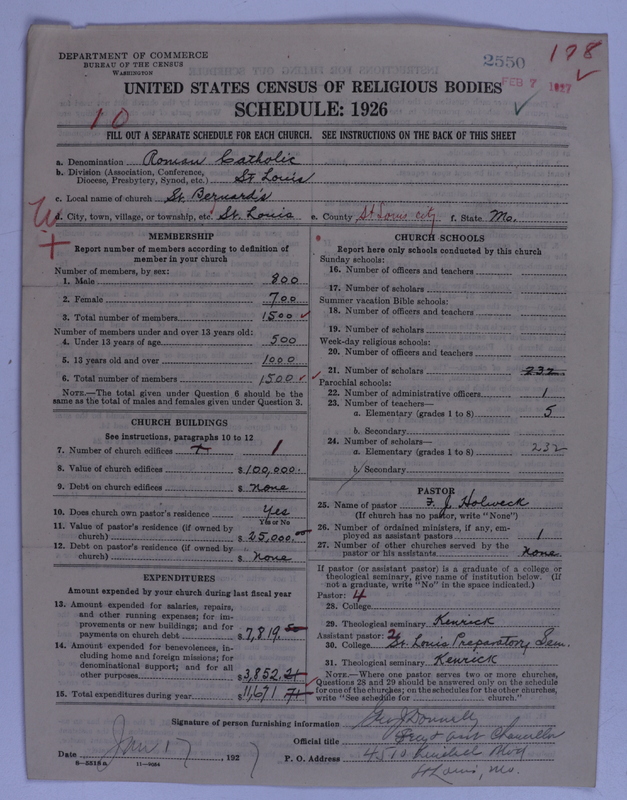 DEPARTMENT OF COMMERCE
BUREAU OF THE CENSUS
WASHINGTON
2550
178
FEB 7 1927
UNITED STATES CENSUS OF RELIGIOUS BODIES
SCHEDULE: 1926
10
FILL OUT A SEPARATE SCHEDULE FOR EACH CHURCH. SEE INSTRUCTIONS ON THE BACK OF THIS SHEET
a. Denomination Roman Catholic
b. Division (Association, Conference,
Diocese, Presbytery, Synod, etc.) St Louis
c. Local name of church St. Bernard's
d. City, town, village, or township, etc. St. Louis e. County St Louis city f. State Mo.
MEMBERSHIP
Report number of members according to definition of
member in your church
Number of members, by sex:
1. Male 800
2. Female 700
3. Total number of members 1500
Number of members under and over 13 years old:
4. Under 13 years of age 500
5. 13 years old and over 1000
6. Total number of members 1500
NOTE.—The total given under Question 6 should be
same as the total of males and females given under Question 3.
CHURCH BUILDINGS
See instructions, paragraphs 10 to 12
7. Number of church edifices 1
8. Value of church edifices $100,000.
9. Debt on church edifices $ none
10. Does church own pastor's residence Yes
Yes or No
11. Value of pastor's residence (if owned by
church) $25,000.00
12. Debt on pastor's residence (if owned by
church) $ none
EXPENDITURES
Amount expended by your church during last fiscal year
13. Amount expended for salaries, repairs,
and other running expenses; for im-
provements or new buildings; and for
payments on church debt $7,819.50
14. Amount expended for benevolences, in-
cluding home and foreign missions; for
denominational support; and for all
other purposes $3,852.21
15. Total expenditures during year $11,671 71
CHURCH SCHOOLS
Report here only schools conducted by this church
Sunday schools:
16. Number of officers and teachers
17. Number of scholars
Summer vacation Bible schools:
18. Number of officers and teachers
19. Number of scholars
Week-day religious schools:
20. Number of officers and teachers
21. Number of scholars 232
Parochial schools:
22. Number of administrative officers 1
23. Number of teachers—
a. Elementary (grades 1 to 8) 5
b. Secondary
24. Number of scholars—
a. Elementary (grades 1 to 8) 232
b. Secondary
PASTOR
25. Name of pastor F. J. Holweck
(If church has no pastor, write "None")
26. Number of ordained ministers, if any, em-
ployed as assistant pastors 1
27. Number of other churches served by the
pastor or his assistants none.
If pastor (or assistant pastor) is a graduate of a college or
theological seminary, give name of institution below. (If
not a graduate, write "No" in the space indicated.)
Pastor: 4
28. College
29. Theological seminary Kenrick
Assistant pastor: 2
30. College St. Louis Preparatory Sem.
31. Theological seminary Kenrick
NOTE.—Where one pastor serves two or more churches,
Questions 28 and 29 should be answered only on the schedule
for one of the churches; on the schedules for the other churches,
write "See schedule for church."
Signature of person furnishing information Geo J Donnelly
Official title Asst Chancellor
Date Jan 17, 1927 P. O. Address 4510
St Louis, Mo.
8-5518a 11-9084